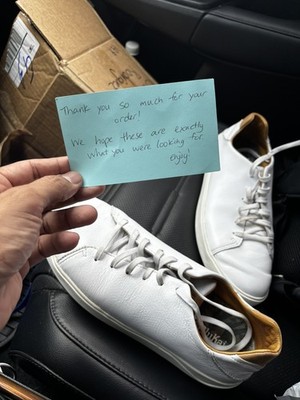 Thank you so much for your
order!
We hope these are exactly
what you were looking for
enjoy!